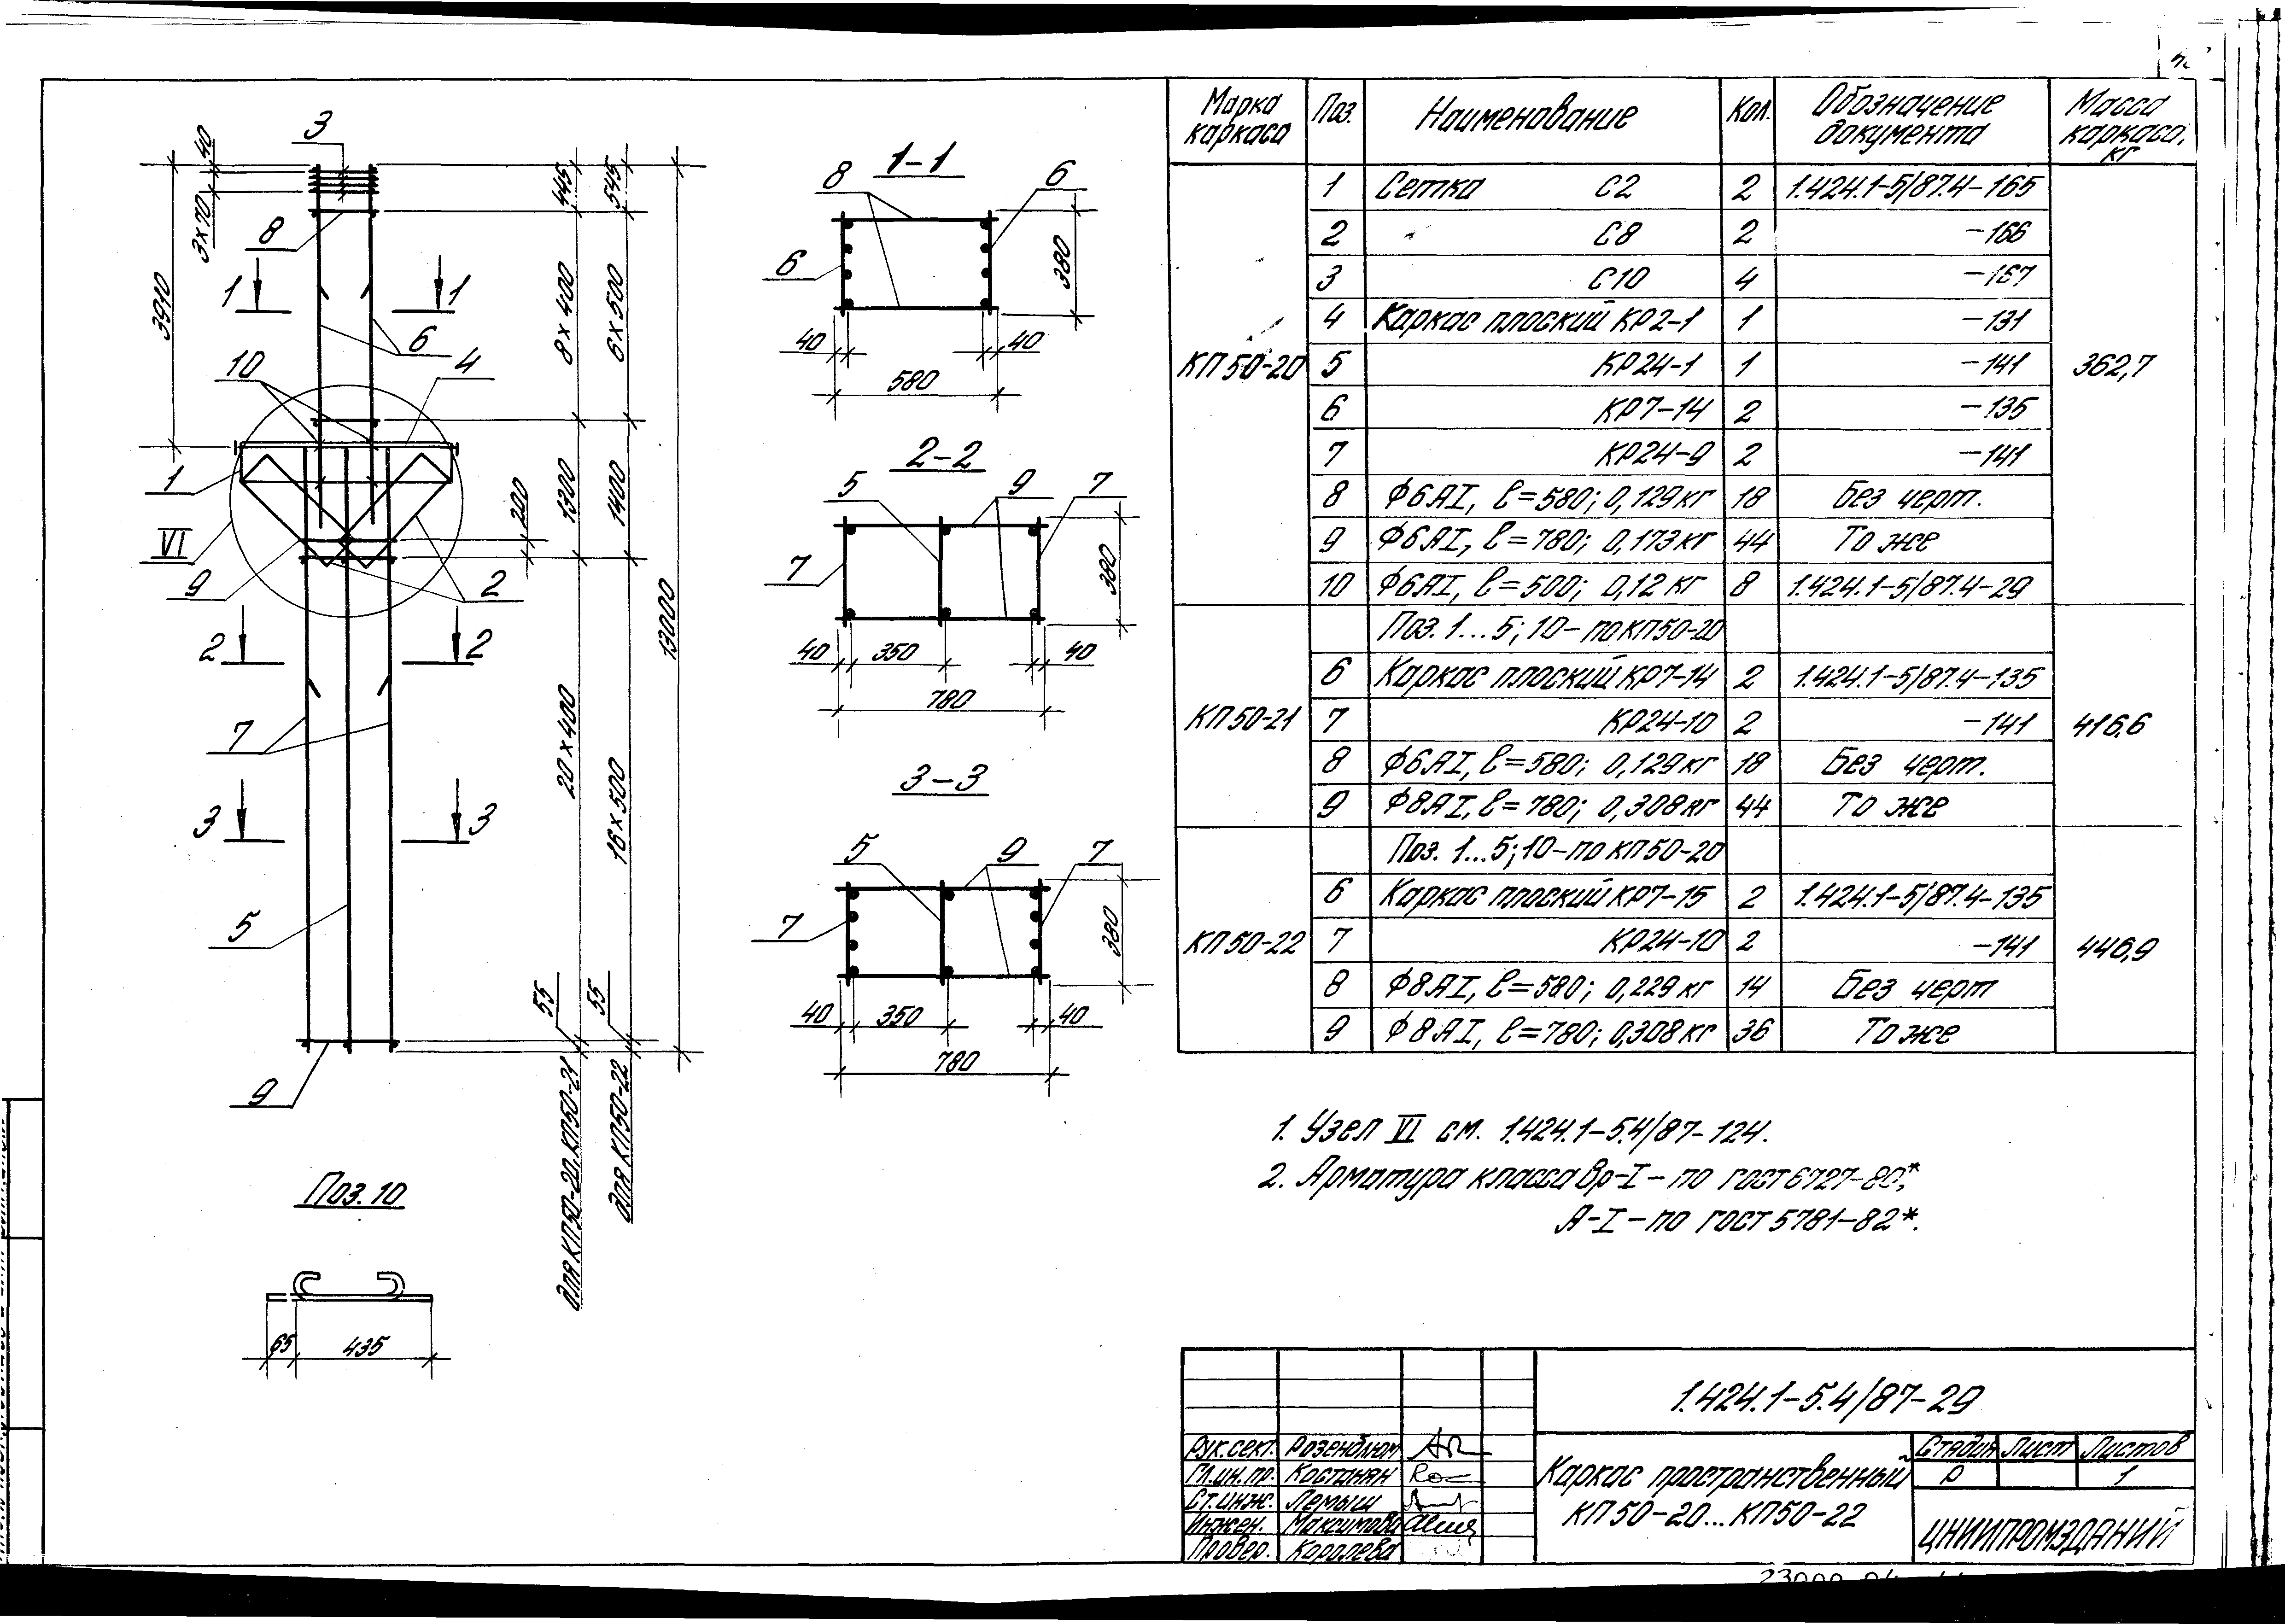 3
40
3×70
8
1 1
3910
6
10
4
1
VI
9
2
200
2 2
7
3 3
5
9
445
545
8×400
6×500
1300
1400
20×400
16×500
13000
55
55
для КП50-20, КП50-21
для КП50-22
Поз. 10
65 435
1-1
8 6
6
380
40 40
580
2-2
5 9 7
7
380
40 350 40
780
3-3
5 9 7
7
380
40 350 40
780
Марка каркаса Поз. Наименование Кол. Обозначение документа Масса каркаса, кг
КП50-20 362,7
1 Сетка С2 2 1.424.1-5/87.4-165
2 С8 2 -166
3 С10 4 -167
4 Каркас плоский КР2-1 1 -131
5 КР24-1 1 -141
6 КР7-14 2 -135
7 КР24-9 2 -141
8 Ф6АI, ℓ=580; 0,129кг 18 Без черт.
9 Ф6АI, ℓ=780; 0,173кг 44 То же
10 Ф6АI, ℓ=500; 0,12 кг 8 1.424.1-5/87.4-29
КП50-21 416,6
Поз. 1...5; 10- по КП50-20
6 Каркас плоский КР7-14 2 1.424.1-5/87.4-135
7 КР24-10 2 -141
8 Ф6АI, ℓ=580; 0,129кг 18 Без черт.
9 Ф8АI, ℓ=780; 0,308кг 44 То же
КП50-22 446,9
Поз. 1...5; 10-по КП50-20
6 Каркас плоский КР7-15 2 1.424.1-5/87.4-135
7 КР24-10 2 -141
8 Ф8АI, ℓ=580; 0,229 кг 14 Без черт
9 Ф8АI, ℓ=780; 0,308кг 36 То же
1. Узел VI см. 1.424.1-5.4/87-124.
2. Арматура класса Вр-I - по ГОСТ 6727-80*;
А-I - по ГОСТ 5781-82*.
1.424.1-5.4/87-29
Рук.сект. Розенблюм
Гл.ин.пр. Костанян
Ст.инж. Лемыш
Инжен. Максимова
Провер. Королева
Каркас пространственный
КП50-20...КП50-22
Стадия Лист Листов
Р 1
ЦНИИПРОМЗДАНИЙ